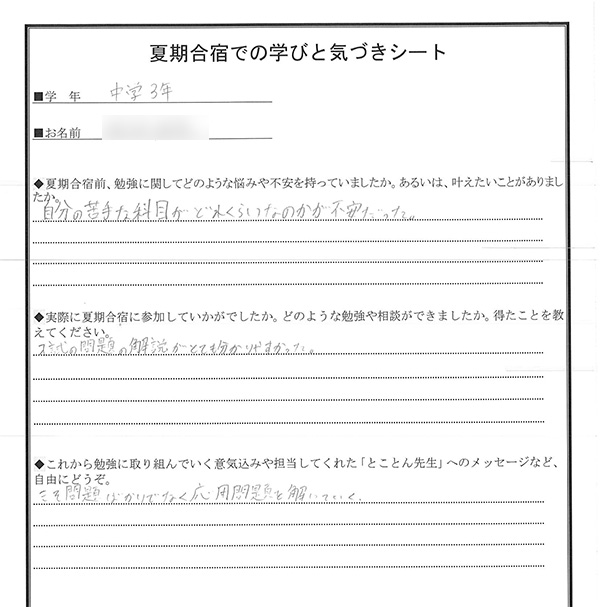 夏期合宿での学びと気づきシート
■学 年 中学3年
■お名前
◆夏期合宿前、勉強に関してどのような悩みや不安を持っていましたか。あるいは、叶えたいことがありまし
たか。
自分の苦手な科目がどれくらいなのかが不安だった。
◆実際に夏期合宿に参加していかがでしたか。どのような勉強や相談ができましたか。得たことを教
えてください。
の問題の解説がとても分かりやすかった。
◆これから勉強に取り組んでいく意気込みや担当してくれた「とことん先生」へのメッセージなど、
自由にどうぞ。
問題ばかりでなく応用問題を解いていく。